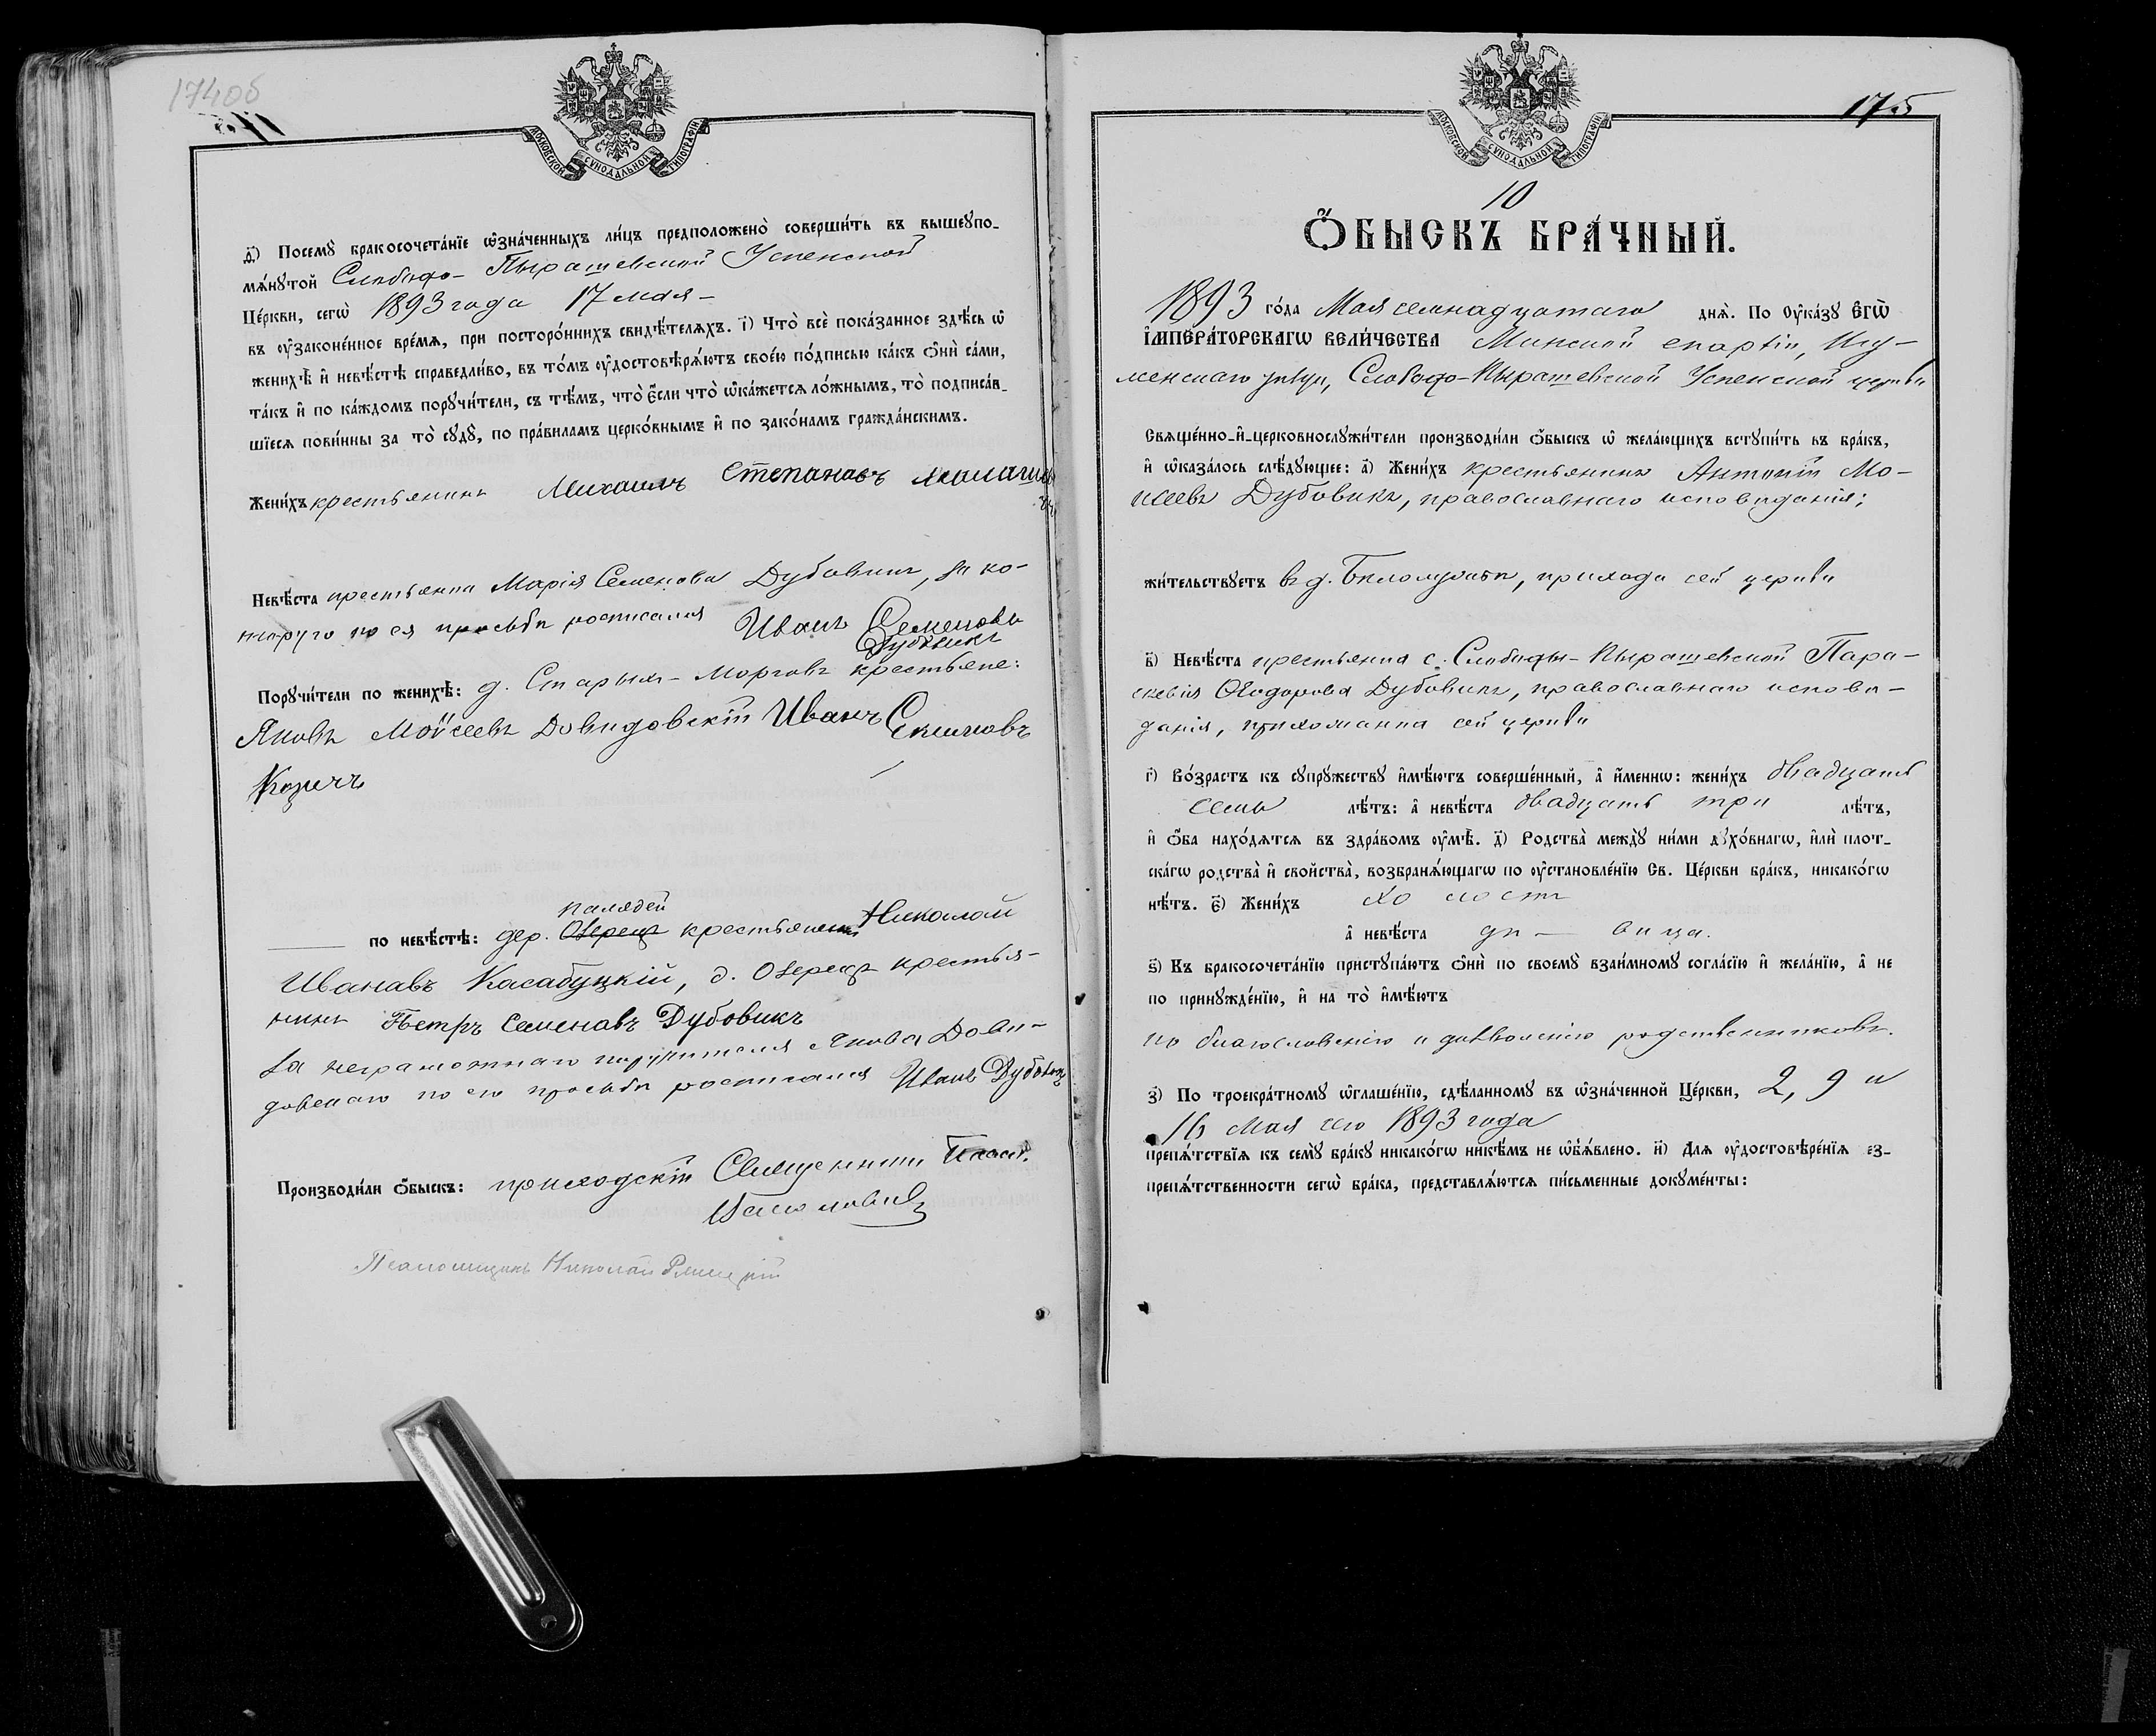 174об
МОСКОВСКОЙ СѴНОДАЛЬНОЙ ТИПОГРАФІИ
д҃і) Посемꙋ̀ бракосочета́нїе ѡ҆зна́ченныхъ ли́цъ предположено̀ соверши́ть въ вышеꙋпо-
мѧ́нꙋтой Слободо-Пырашевской Успенской
Це́ркви, сегѡ̀ 1893 года 17 мая-
въ ᲂу҆зако́ненное вре́мѧ, при посторо́ннихъ свидѣ́телѧхъ. і҃) Что̀ всѐ пока́занное здѣ́сь ѡ҆
женихѣ̀ и҆ невѣ́стѣ справедли́во, въ то́мъ ᲂу҆достовѣрѧ́ютъ свое́ю по́дписью ка́къ ѻ҆нѝ са́ми,
та́къ и҆ по ка́ждомъ порꙋчи́тели, съ тѣ́мъ, что̀ є҆́сли что̀ ѡ҆ка́жетсѧ ло́жнымъ, то̀ подписа́в-
шїесѧ пови́нны за то̀ сꙋдꙋ̀, по пра́виламъ церко́внымъ и҆ по зако́намъ гражда́нскимъ.
Жени́хъ крестьянинъ Михаилъ Степанавъ
Невѣ́ста крестьянка Марія Семенова Дубовикъ, за ко-
торую по ея просьбѣ росписался Иванъ Семеновъ
Дубовикъ
Порꙋчи́тели по женихѣ̀: д. Старыхъ-Морговъ крестьяне:
Яковъ Мойсеевъ Довидовскій Иванъ
Козичъ
палядей
по невѣ́стѣ: дер. Озерецъ крестьянинъ Николай
Иванавъ Касабуцкій, д. Озерецъ крестья-
нинъ Петръ Семенавъ Дубовикъ
За неграмотнаго поручителя Якова Дови-
довскаго по его просьбѣ росписался Иванъ Дубовикъ
Производи́ли ѻ҆́быскъ: приходскій Священникъ
Псаломщикъ Николай
175
МОСКОВСКОЙ СѴНОДАЛЬНОЙ ТИПОГРАФІИ
10
Ѻ҆́БЫСКЪ БРА́ЧНЫЙ.
1893 го́да Мая семнадцатаго днѧ̀. По Оу҆ка́зꙋ Є҆гѡ̀
І҆мпера́торскагѡ Вели́чества Минской епархіи, Игу-
менскаго уѣзда, Слободо-Пырашевской Успенской церкви
Свѧще́нно-и҆-церковнослꙋжи́тели производи́ли ѻ҆́быскъ ѡ҆ жела́ющихъ встꙋпи́ть въ бра́къ,
и҆ ѡ҆каза́лось слѣ́дꙋющее: а҃) Жени́хъ крестьянинъ Антоній Мо-
исеевъ Дубовикъ, православнаго исповѣданія;
жи́тельствꙋетъ въ д. прихода сей церкви
в҃) Невѣ́ста крестьянка с. Слободы-Пырашевской Пара-
скевія Ѳеодорова Дубовикъ, православнаго исповѣ-
данія, прихожанка сей церкви
г҃) Во́зрастъ къ сꙋпрꙋ́жествꙋ и҆мѣ́ютъ соверше́нный, а҆ и҆́меннѡ: жени́хъ двадцать
семь лѣ́тъ: а҆ невѣ́ста двадцать три лѣ́тъ,
и҆ ѻ҆́ба нахо́дѧтсѧ въ здра́вомъ ᲂу҆мѣ̀. д҃) Родства̀ междꙋ̀ ни́ми дꙋхо́внагѡ, и҆лѝ плот-
ска́гѡ родства̀ и҆ свойства̀, возбранѧ́ющагѡ по ᲂу҆становле́нїю Св. Це́ркви бра́къ, никако́гѡ
нѣ́тъ. є҃) Жени́хъ холостъ
а҆ невѣ́ста дѣ — вица.
ѕ҃) Къ бракосочета́нїю пристꙋпа́ютъ ѻ҆нѝ по своемꙋ̀ взаи́мномꙋ согла́сїю и҆ жела́нїю, а҆ не
по принꙋжде́нїю, и҆ на то̀ и҆мѣ́ютъ
по благословенію и дозволенію родственниковъ.
з҃) По троекра́тномꙋ ѡ҆глаше́нїю, сдѣ́ланномꙋ въ ѡ҆зна́ченной Це́ркви, 2, 9 и
16 Мая сего 1893 года
препѧ́тствїѧ къ семꙋ̀ бра́кꙋ никако́гѡ никѣ́мъ не ѡ҆б̾ѧ́влено. и҃) Длѧ ᲂу҆достовѣре́нїѧ ез-
препѧ́тственности сегѡ̀ бра́ка, представлѧ́ютсѧ пи́сьменные докꙋме́нты: